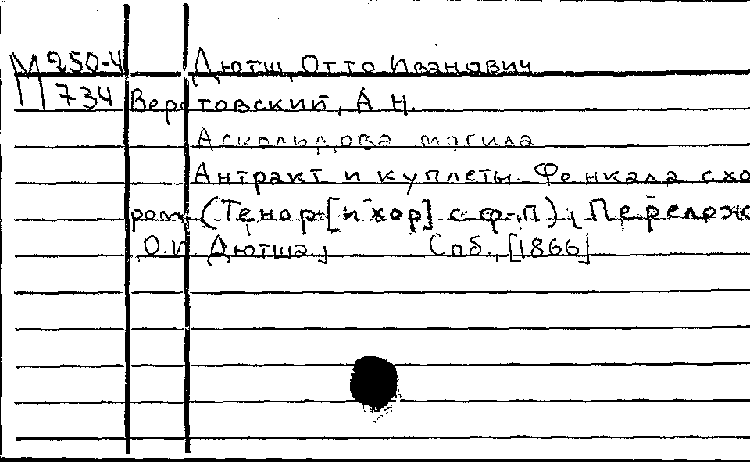 М 250-4 Дютш, Отто Иванович
734 Верстовский, А. Н.
Аскольдова могила
Антракт и куплеты Фенкала с хо
ром (Тенор [и хор] с ф-п), Перелож
О.И. Дютша,] Спб., [1866]